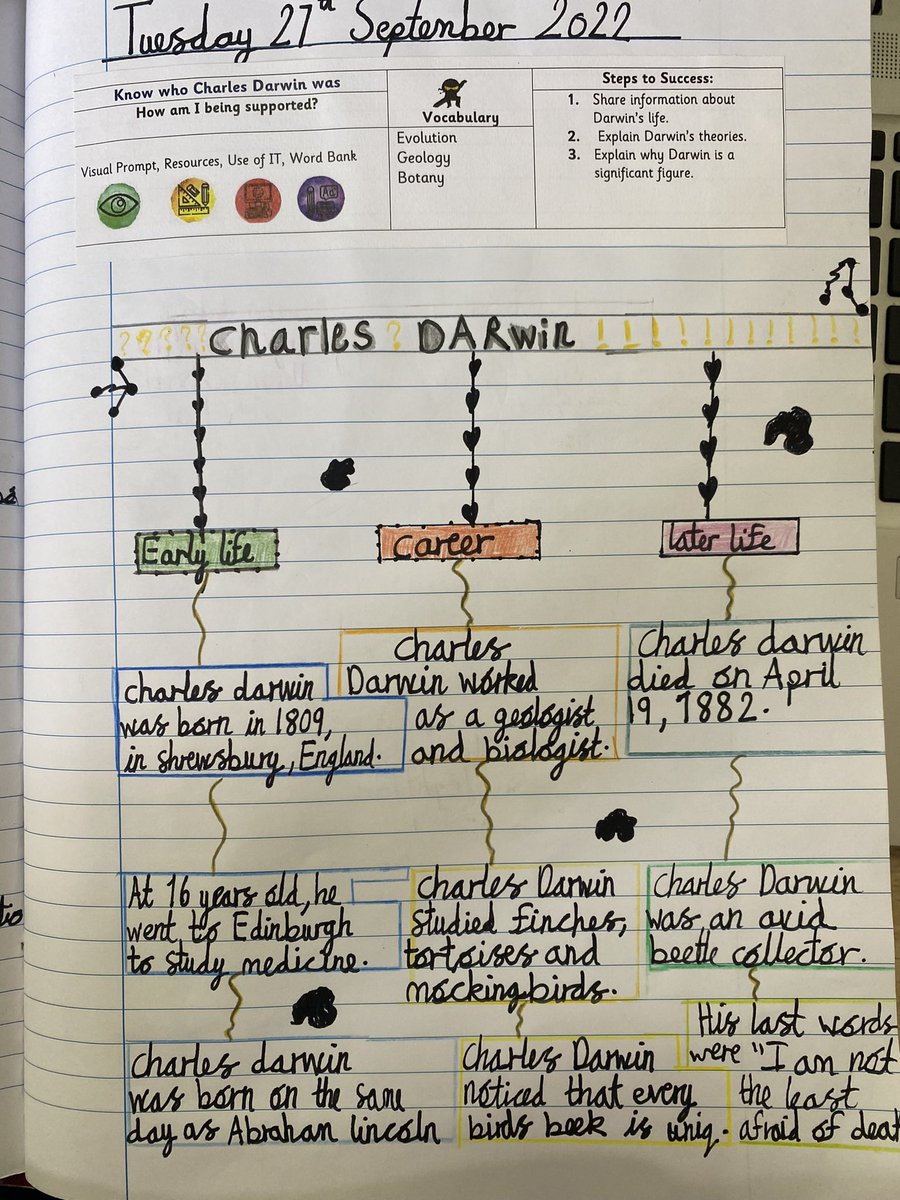 Tuesday 27th September 2022
Know who Charles Darwin was
How am I being supported?
Visual Prompt, Resources, Use of IT, Word Bank
Vocabulary
Evolution
Geology
Botany
Steps to Success:
1. Share information about
Darwin's life.
2. Explain Darwin's theories.
3. Explain why Darwin is a
significant figure.
????? Charles ? DARwin ! ! ! ! ! ! ! ! ! ! ! ! !
Early life
career
later life
charles darwin
was born in 1809,
in shrewsbury, England.
At 16 years old, he
went to Edinburgh
to study medicine.
charles darwin
was born on the same
day as Abraham lincoln
charles
Darwin worked
as a geologist
and biologist.
charles Darwin
studied finches,
tortoises and
mockingbirds.
Charles Darwin
noticed that every
birds beek is uniq.
Charles darwin
died on April
19, 1882.
Charles Darwin
was an avid
beetle collector.
His last words
were "I am not
the least
afraid of deat